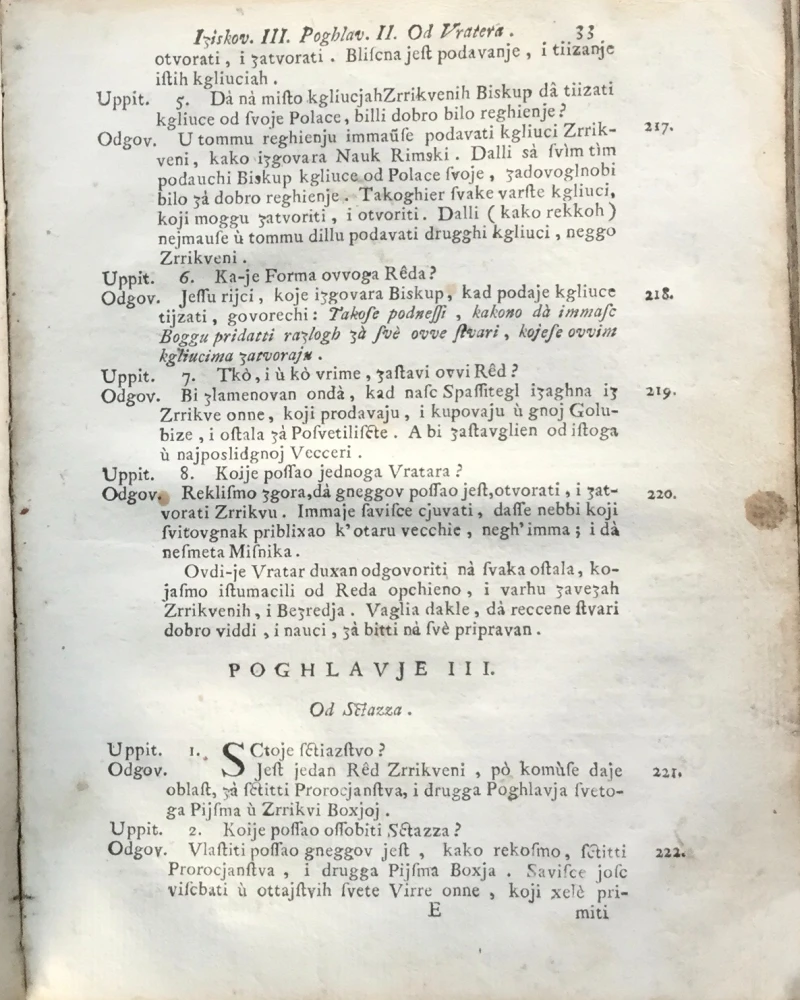 Iʒiskov. III. Poghlav. II. Od Vratera. 33
otvorati, i ʒatvorati. Bliſcna jeſt podavanje, i tiizanje
iſtih kgliuciah.
Uppit. 5. Dà nà miſto kgliucjahZrrikvenih Biskup dà tiizati
kgliuce od ſvoje Polace, billi dobro bilo reghienje?
Odgov. U tommu reghienju immaûſe podavati kgliuci Zrrik- 217.
veni, kako iʒgovara Nauk Rimski. Dalli sà ſvìm tìm
podauchi Biskup kgliuce od Polace ſvoje, ʒadovoglnobi
bilo ʒà dobro reghienje. Takoghier ſvake varſte kgliuci,
koji moggu ʒatvoriti, i otvoriti. Dalli (kako rekkoh)
nejmauſe ù tommu dillu podavati drugghi kgliuci, neggo
Zrrikveni.
Uppit. 6. Ka-je Forma ovvoga Rêda?
Odgov. Jeſſu rijci, koje iʒgovara Biskup, kad podaje kgliuce 218.
tijzati, govorechi: Takoſe podneſſi, kakono dà immaſc
Boggu pridatti raʒlogh ʒà ſvè ovve ſtvari, kojeſe ovvim
kgliucima ʒatvoraju.
Uppit. 7. Tkò, i ù kò vrime, ʒaſtavi ovvi Rêd?
Odgov. Bi ʒlamenovan ondà, kad naſc Spaſſitegl iʒaghna iʒ 219.
Zrrikve onne, koji prodavaju, i kupovaju ù gnoj Golu-
bize, i oſtala ʒà Poſvetiliſcte. A bi ʒaſtavglien od iſtoga
ù najposlidgnoj Vecceri.
Uppit. 8. Koije poſſao jednoga Vratara?
Odgov. Rekliſmo ʒgora,dà gneggov poſſao jeſt,otvorati, i ʒat- 220.
vorati Zrrikvu. Immaje ſaviſce cjuvati, daſſe nebbi koji
ſvitovgnak priblixao k'otaru vecchie, negh'imma; i dà
neſmeta Miſnika.
Ovdi-je Vratar duxan odgovoriti nà ſvaka oſtala, ko-
jaſmo iſtumacili od Reda opchieno, i varhu ʒaveʒah
Zrrikvenih, i Beʒredja. Vaglia dakle, dà reccene ſtvari
dobro viddi, i nauci, ʒà bitti nà ſvè pripravan.
POGHLAVJE III.
Od Sctiazza.
Uppit. 1. SCtoje ſctiazſtvo?
Odgov. Jeſt jedan Rêd Zrrikveni, pò komùſe daje 221.
oblaſt, ʒà ſctitti Prorocjanſtva, i drugga Poghlavja ſveto-
ga Pijſma ù Zrrikvi Boxjoj.
Uppit. 2. Koije poſſao oſſobiti Sctazza?
Odgov. Vlaſtiti poſſao gneggov jeſt, kako rekoſmo, ſctitti 222.
Prorocjanſtva, i drugga Pijſma Boxja. Saviſce joſc
viſcbati ù ottajſtvih ſvete Virre onne, koji xelè pri-
E miti